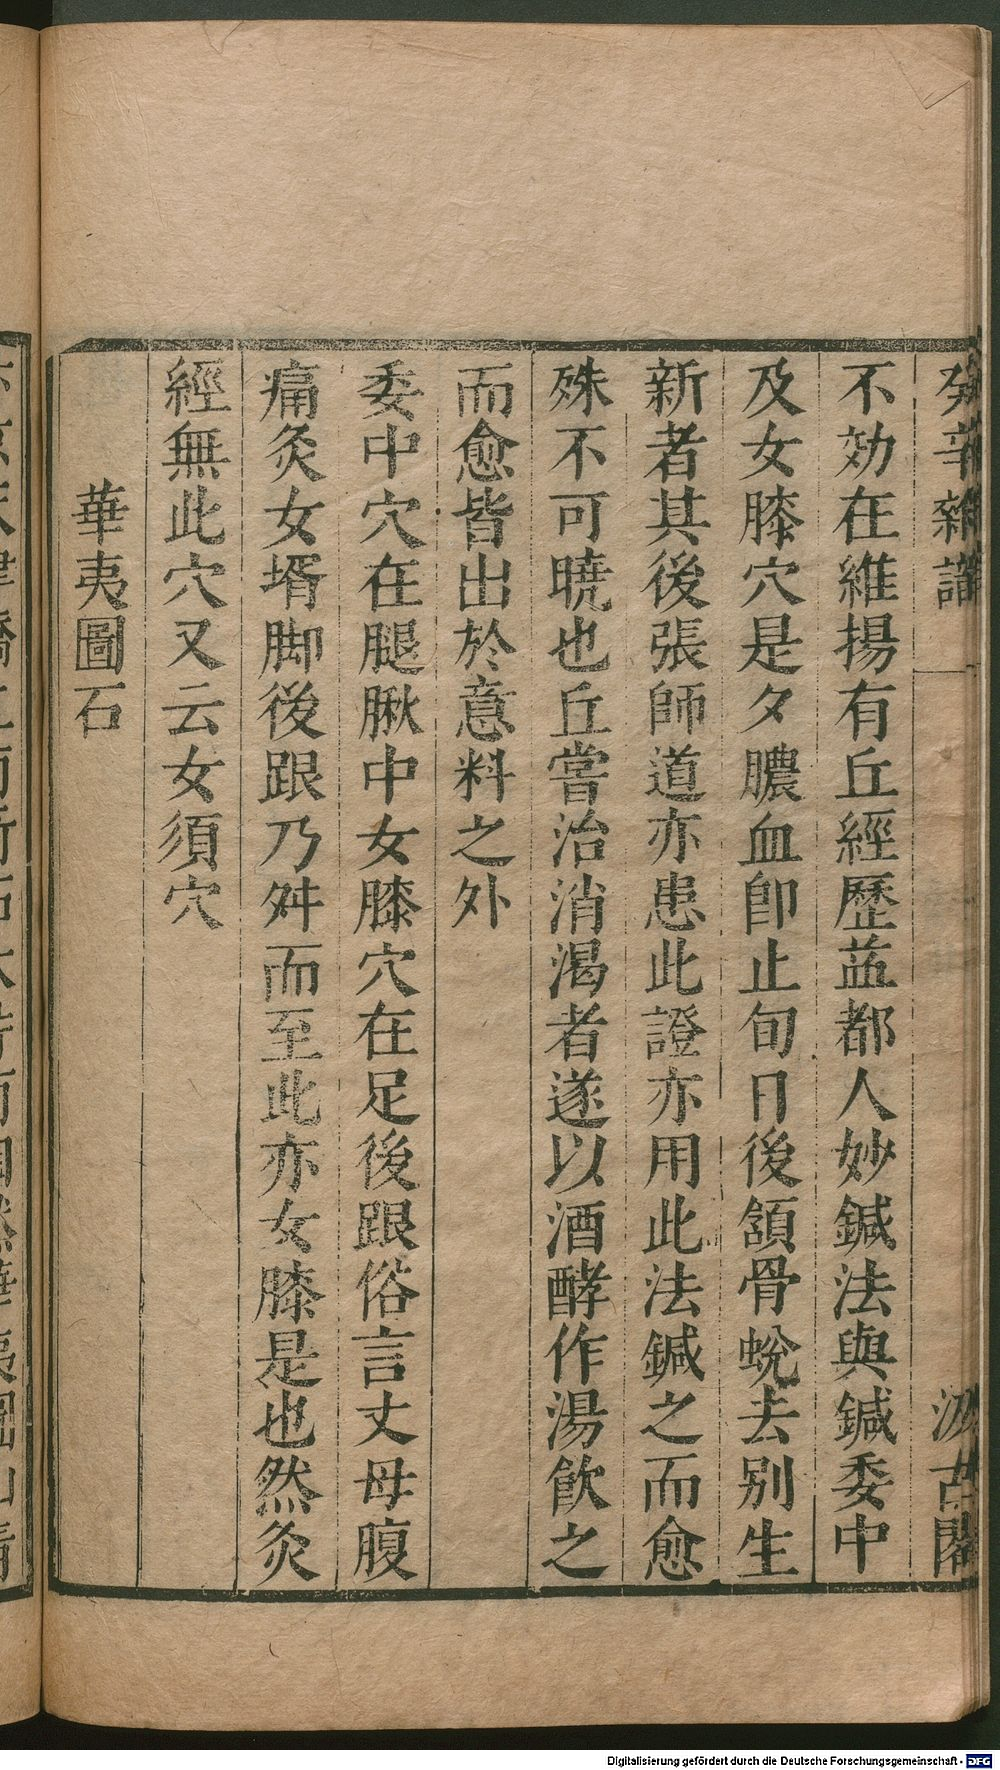 癸辛雜識
汲古閣
不効在維揚有丘經歷益都人妙鍼法與鍼委中
及女膝穴是夕膿血卽止旬日後頷骨蛻去別生
新者其後張師道亦患此證亦用此法鍼之而愈
殊不可曉也丘嘗治消渴者遂以酒酵作湯飮之
而愈皆出於意料之外
委中穴在腿䐐中女膝穴在足後跟俗言丈母腹
痛灸女壻脚後跟乃舛而至此亦女膝是也然灸
經無此穴又云女須穴
華夷圖石
Digitalisierung gefördert durch die Deutsche Forschungsgemeinschaft - DFG